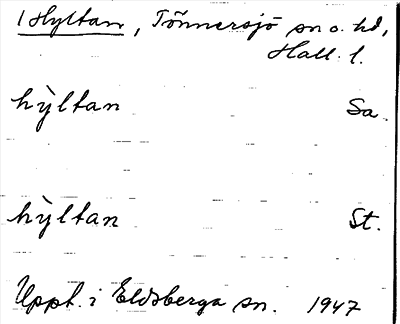 1 Hyltan, Tönnersjö sn o. hd,
Hall. l.
hỳltan Sa.
hỳltan St.
Uppt. i Eldsberga sn. 1947